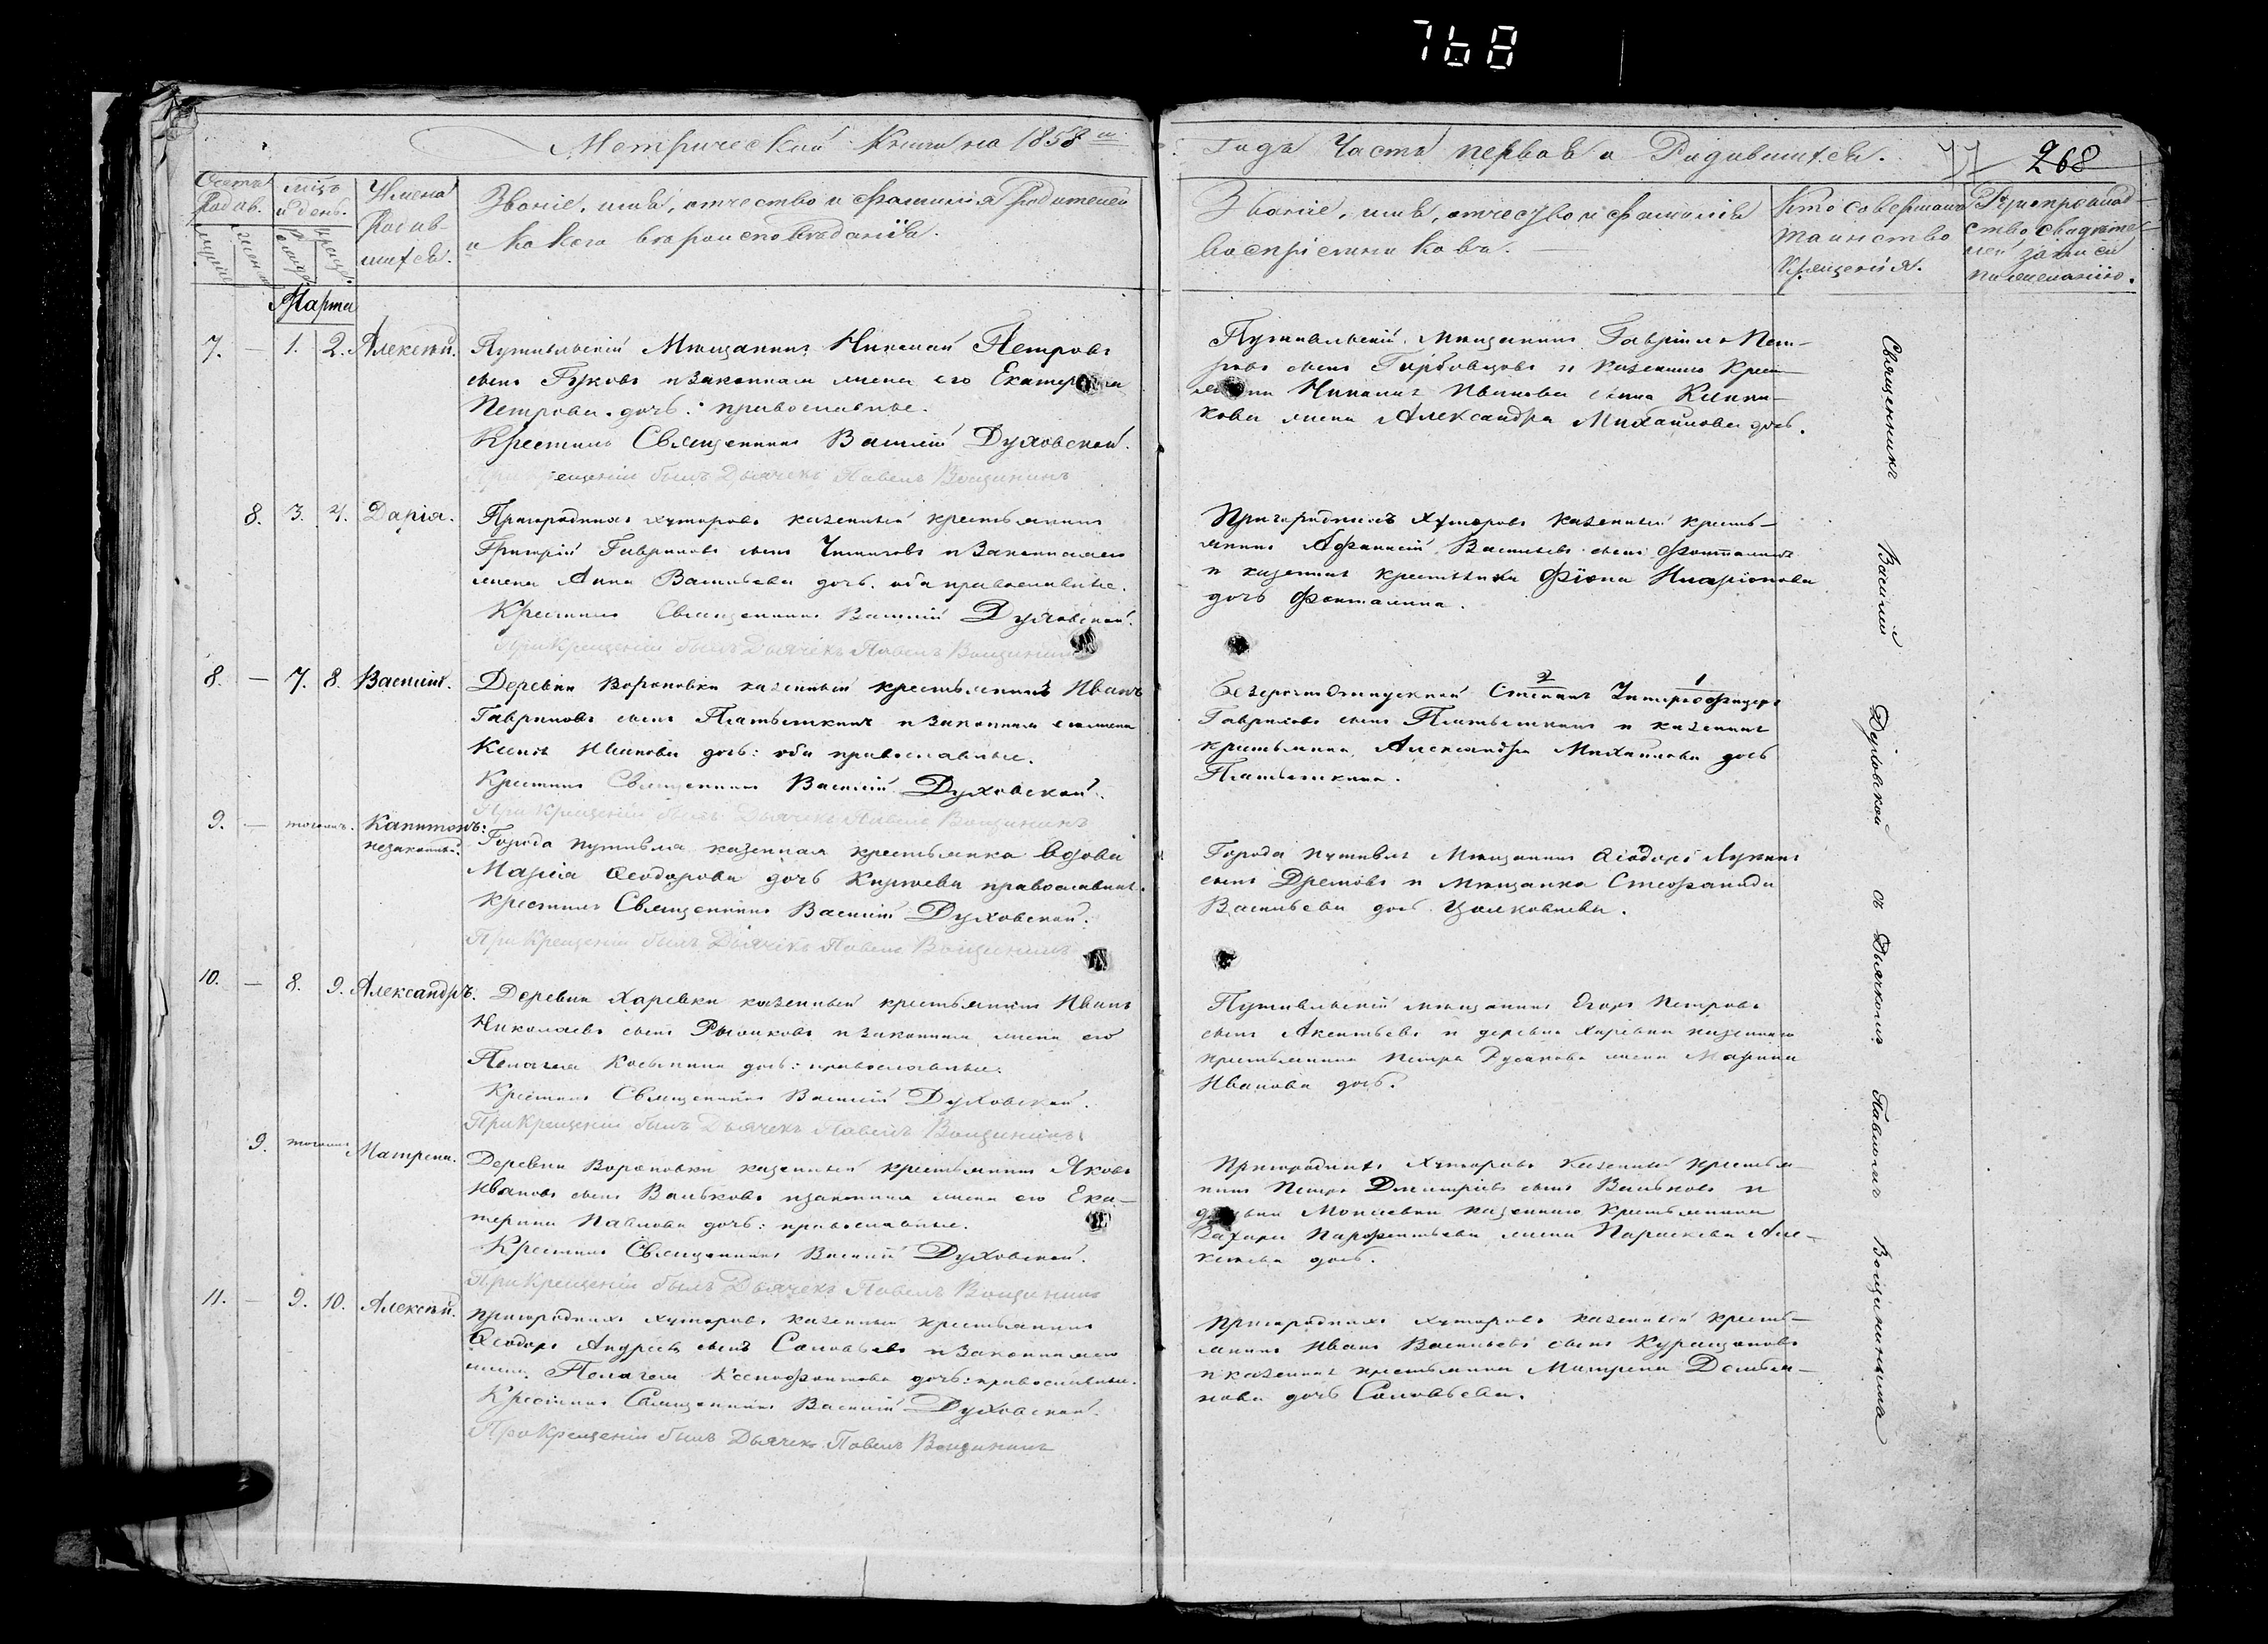 768
Метрической Книги на 1858й
Года Часть первая о Родившихся.
77 268
Счетъ родив.
мужеск
женск
мѣсяцъ и день.
рожде.
креще.
Имена Родив-
шихся.
Званіе, имя, отчество и фамилія родителей
и какого вѣроисповѣданія.
Званіе, имя, отчество и фамилія
воспріемниковъ.
Кто совершалъ
таинство
крещенія.
Рукоприклад-
ство свидѣте-
лей записи
по желанію.
Марта
7. — 1. 2. Алексѣй.
Путивльскій Мѣщанинъ Николай Петровъ
сынъ Гуковъ и Законная жена его Екатерина
Петрова дочь: православные.
Крестилъ Священникъ Василій Духовской.
При Крещеніи былъ Дьячекъ Павелъ Вощининъ
Путивльскій Мѣщанинъ Гавріилъ Пет-
ровъ сынъ Горбовцовъ и казеннаго крест
Ивановы сына
кова жена Александра Михайлова дочь.
8. 3. 4. Дарія.
Пригородныхъ хуторовъ казенный крестьянинъ
Григорій Гавриловъ сынъ и Законная его
жена Анна Васильева дочь. оба православные.
Крестилъ Священникъ Василій Духовской.
При Крещеніи былъ Дьячекъ Павелъ Вощининъ
Пригородныхъ Хуторовъ казенный кресть-
янинъ Афанасій Васильевъ сынъ
и казенная крестьянка Фіона Иларіонова
дочь
8. — 7. 8. Василій.
Деревни Вороновки казенный крестьянинъ Иванъ
Гавриловъ сынъ Платышкинъ и Законная его жена
Ивановы дочь: оба православные.
Крестилъ Священникъ Василій Духовской.
При Крещеніи былъ Дьячекъ Павелъ Вощининъ
2 1
Безсрочноотпускной Степанъ Унтеръофицеръ
Гавриловъ сынъ Платышкинъ и казенная
крестьянка Александра Михайлова дочь
Платышкина.
9. — тогожъ. Капитонъ:
незаконный.
Города Путивля казенная крестьянка вдова
Марія Ѳеодорова дочь Киреева православная.
Крестилъ Священникъ Василій Духовской.
При Крещеніи былъ Дьячекъ Павелъ Вощининъ
Города Путивля Мѣщанинъ Ѳеодоръ Лукинъ
сынъ Дремовъ и Мѣщанка Стефанида
Васильева дочь
10. — 8. 9. Александръ.
Деревни Харевки казенный крестьянинъ Иванъ
Николаевъ сынъ и законная жена его
Пелагея Косьмина дочь: православные.
Крестилъ Священникъ Василій Духовской.
При Крещеніи былъ Дьячекъ Павелъ Вощининъ
Путивльскій мѣщанинъ Егоръ Петровъ
сынъ Акентьевъ и деревни Харевки казеннаго
крестьянина Петра Русанова жена Марина
Иванова дочь.
9. тогожъ Матрена.
Деревни Вороновки казенный крестьянинъ Яковъ
Ивановъ сынъ Вальковъ и законная жена его Ека-
терина Павлова дочь: православные.
Крестилъ Священникъ Василій Духовской.
При Крещеніи былъ Дьячекъ Павелъ Вощининъ
Пригородныхъ Хуторовъ Казенный крестья-
нинъ Петръ Дмитріевъ сынъ Вальковъ и
казеннаго крестьянина
Захара Парфентьева жена Параскева Але-
дочь.
11. — 9. 10. Алексѣй.
Пригородныхъ хуторовъ казенный крестьянинъ
Ѳеодоръ Андреевъ сынъ Соловьевъ и Законная его
жена Пелагея Ксенофонтова дочь: православные.
Крестилъ Священникъ Василій Духовской.
При Крещеніи былъ Дьячекъ Павелъ Вощининъ
Пригородныхъ хуторовъ казенный кресть-
янинъ Иванъ Васильевъ сынъ Куращановъ
и казенная крестьянка Матрена Демья-
нова дочь Соловьева.
Священникъ Василій Духовской съ Дьячкомъ Павломъ Вощининымъ